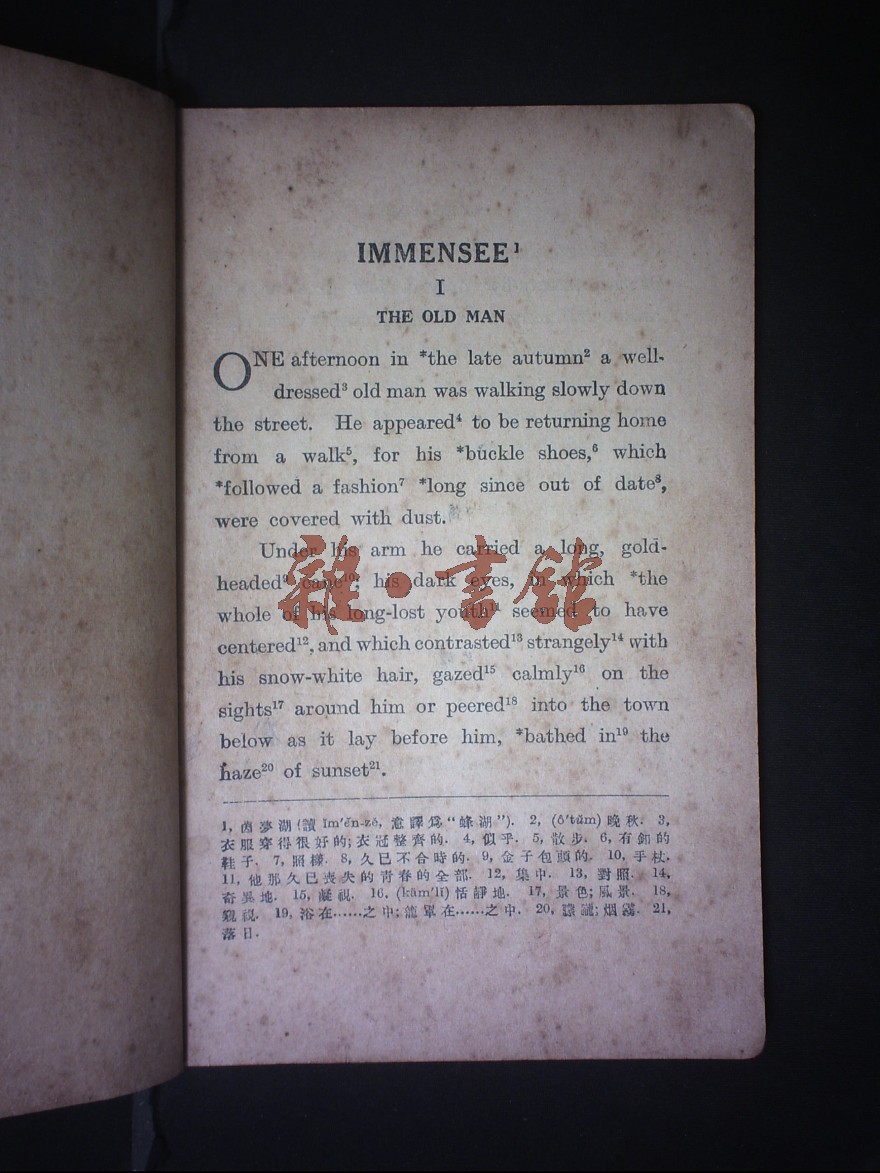 IMMENSEE¹
I
THE OLD MAN
ONE afternoon in *the late autumn² a well-
dressed³ old man was walking slowly down
the street. He appeared⁴ to be returning home
from a walk⁵, for his *buckle shoes,⁶ which
*followed a fashion⁷ *long since out of date⁸,
were covered with dust.
Under his arm he carried a long, gold-
headed⁹ cane¹⁰; his dark eyes, in which *the
whole of his long-lost youth¹¹ seemed to have
centered¹², and which contrasted¹³ strangely¹⁴ with
his snow-white hair, gazed¹⁵ calmly¹⁶ on the
sights¹⁷ around him or peered¹⁸ into the town
below as it lay before him, *bathed in¹⁹ the
haze²⁰ of sunset²¹.
1, 茵夢湖 (讀 ĭm′ĕn-zē, 意譯爲 "蜂湖"). 2, (ô′tŭm) 晚秋. 3,
衣服穿得很好的; 衣冠整齊的. 4, 似乎. 5, 散步. 6, 有釦的
鞋子. 7, 照樣. 8, 久已不合時的. 9, 金子包頭的. 10, 手杖.
11, 他那久已喪失的青春的全部. 12, 集中. 13, 對照. 14,
奇異地. 15, 凝視. 16, (käm′lĭ) 恬靜地. 17, 景色; 風景. 18,
窺視. 19, 浴在……之中; 籠罩在……之中. 20, 朦朧; 烟霧. 21,
落日.
雜·書館